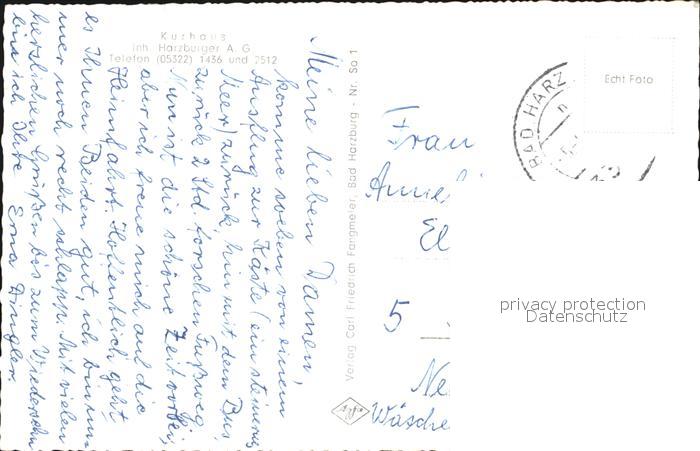 Kurhaus
Inh. Harzburger A. G.
Telefon (05322) 1436 und 2512
Meine lieben Damen,
komme soeben von einem
Ausflug zur Käste (ein steinernes
Meer) zurück, hin mit dem Bus,
zurück 2 Std. forschen Fußweg.
Nun ist die schöne Zeit vorbei,
aber ich freue mich auf die
Heimfahrt. Hoffentlich geht
es Ihnen Beiden gut, ich bin im-
mer noch recht schlapp. Mit vielen
herzlichen Grüßen bis zum Wiedersehn
bin ich Ihre Erna
Verlag Carl Friedrich Fangmeier, Bad Harzburg - Nr. So 1
Agfa
BAD HARZ
Echt Foto
Frau
Anneli
El
5
Ne
Wäsche
privacy protection
Datenschutz